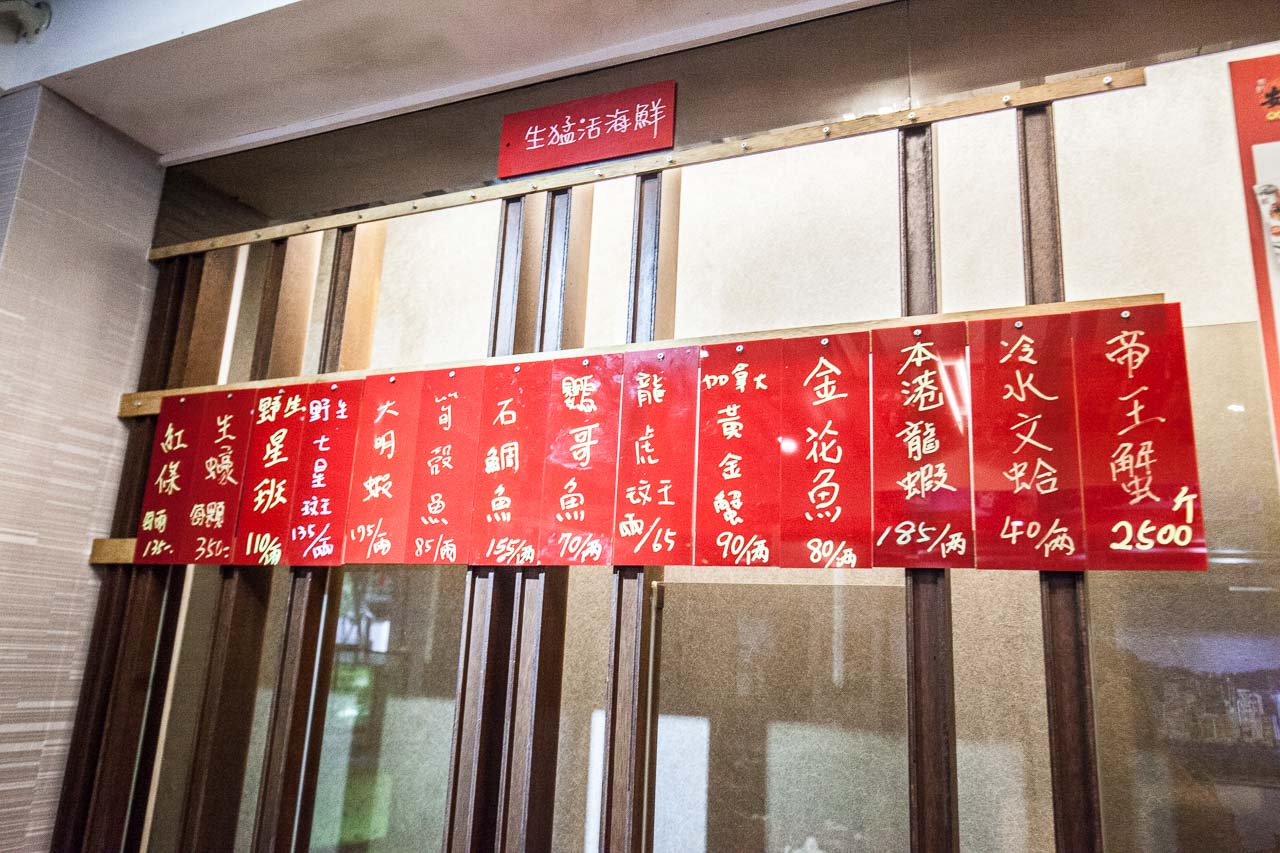 生猛活海鮮
帝王蟹
2500斤
冷水文蛤
40/両
本港龍蝦
185/両
金花魚
80/両
加拿大
黃金蟹
90/両
龍虎斑
両/65
鸚哥魚
70/両
石鯛魚
155/両
筍殼魚
85/両
大明蝦
195/両
野生
七星斑
135/両
野生
星班
110/両
生蠔
每顆
350-
紅條
每両
135-